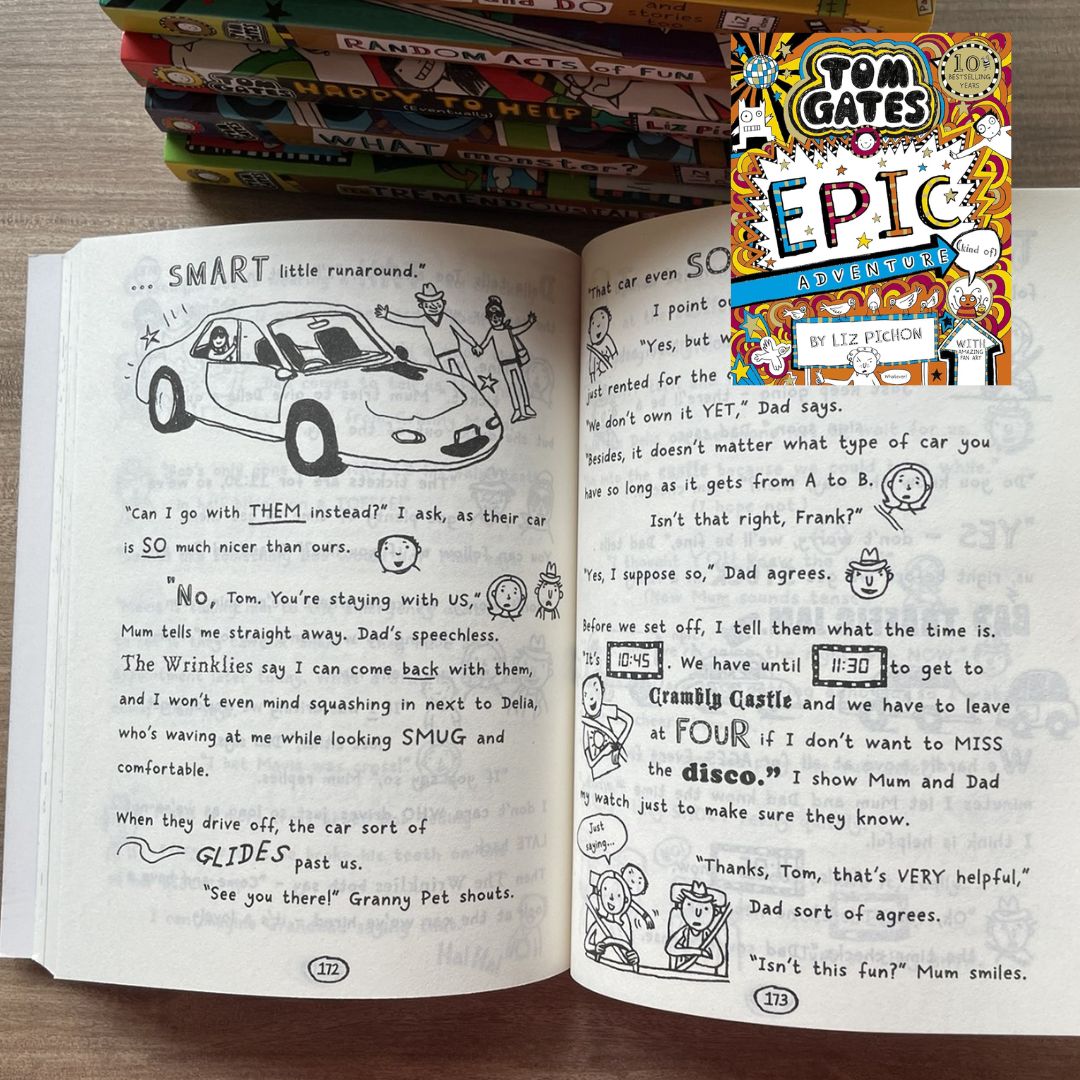 and
stories
too
RANDOM ACTS of FUN
TOM GATES
HAPPY TO HELP
(Eventually)
WHAT monster?
TOM
GATES
10
BESTSELLING
YEARS
EPIC
ADVENTURE
(kind of)
BY LIZ PICHON
WITH
AMAZING
FAN ART
Whatever!
... SMART little runaround."
"Can I go with THEM instead?" I ask, as their car
is SO much nicer than ours.
"No, Tom. You're staying with US,"
Mum tells me straight away. Dad's speechless.
The Wrinklies say I can come back with them,
and I won't even mind squashing in next to Delia,
who's waving at me while looking SMUG and
comfortable.
When they drive off, the car sort of
GLIDES past us.
"See you there!" Granny Pet shouts.
172
"That car even SO
I point
"Yes, but
just rented for the
"We don't own it YET," Dad says.
"Besides, it doesn't matter what type of car you
have so long as it gets from A to B.
Isn't that right, Frank?"
"Yes, I suppose so," Dad agrees.
Before we set off, I tell them what the time is.
"It's 10:45. We have until 11:30 to get to
Crambly Castle and we have to leave
at FOUR if I don't want to MISS
the disco." I show Mum and Dad
my watch just to make sure they know.
Just
saying...
"Thanks, Tom, that's VERY helpful,"
Dad sort of agrees.
"Isn't this fun?" Mum smiles.
173